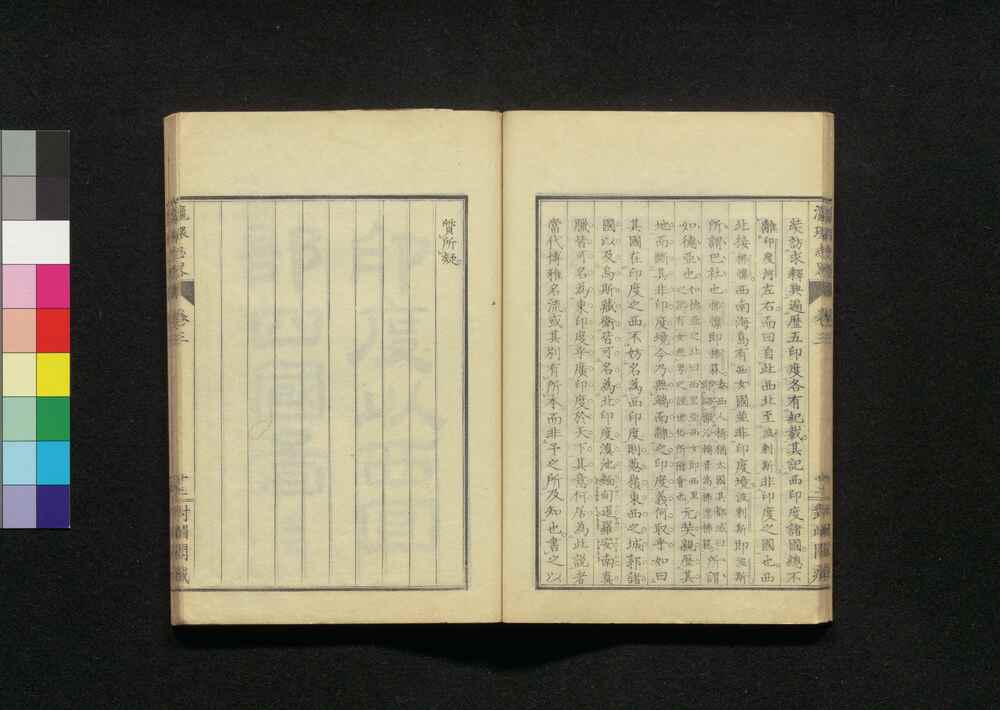 奘訪求釋典遍歷五印度各有紀載其記西印度諸國總不
離印度河左右而曰自此西北至波剌斯非印度之國也西
北接拂懍西南海島有西女國並非印度境波剌斯即波斯
所謂巴社也拂懍即拂菻
如德亞也
元奘親歷其
地而斷其非印度境今乃無端而離之印度義何取乎如曰
其國在印度之西不妨名為西印度則蔥嶺東西之城郭諸
國以及烏斯藏衛皆可名為北印度滇池緬甸暹羅安南真
臘皆可名為東印度乎廣印度於天下其意何居為此說者
當代博雅名流或其別有所本而非予之所及知也書之以
質所疑
卷三